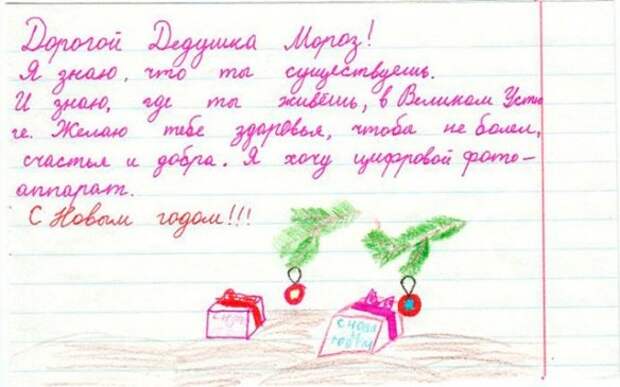 Дорогой Дедушка Мороз!
Я знаю, что ты существуешь.
И знаю, где ты живёшь, в Великом Устю
ге. Желаю тебе здоровья, чтоба не болел,
счастья и добра. Я хочу цифровой фото-
аппарат.
С Новым годом!!!
с новы
м
годом